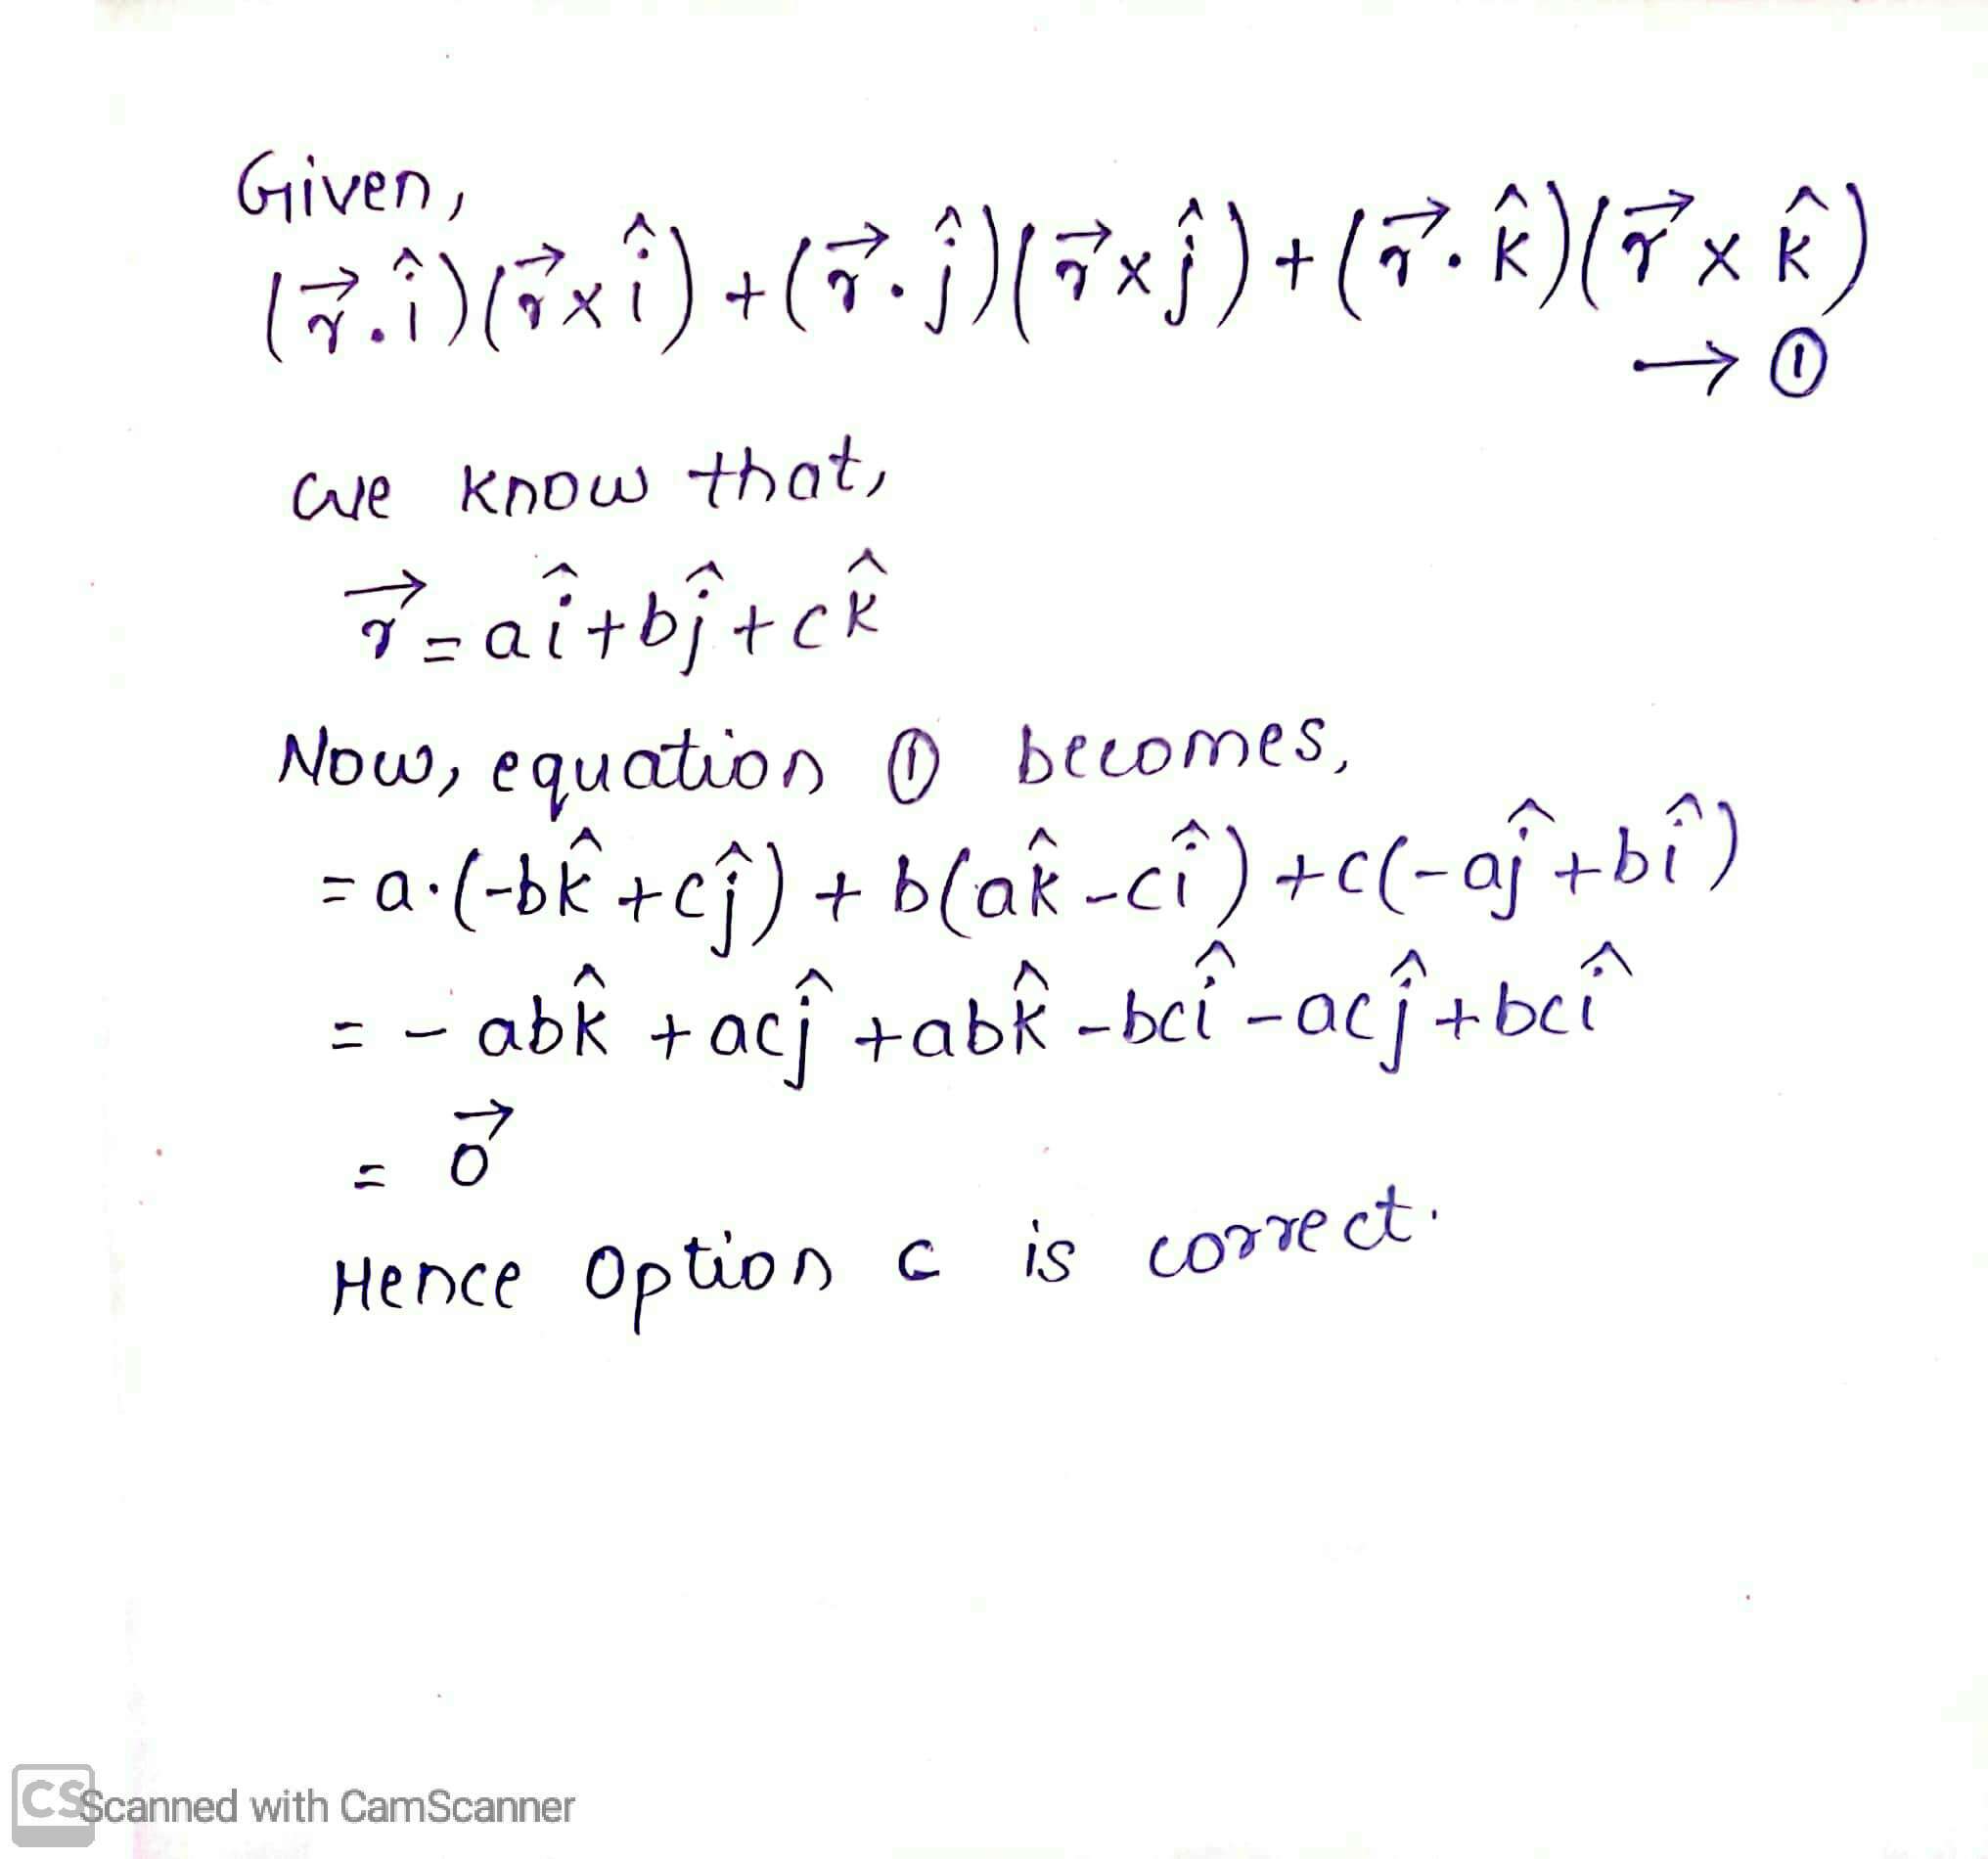 Given,
(r⃗.î)(r⃗×î)+(r⃗.ĵ)(r⃗×ĵ)+(r⃗.k̂)(r⃗×k̂)
→①
we know that,
r⃗=aî+bĵ+ck̂
Now, equation ① becomes,
=a.(-bk̂+cĵ)+b(ak̂-cî)+c(-aĵ+bî)
=-abk̂+acĵ+abk̂-bcî-acĵ+bcî
=0⃗
Hence Option c is correct.
CS Scanned with CamScanner